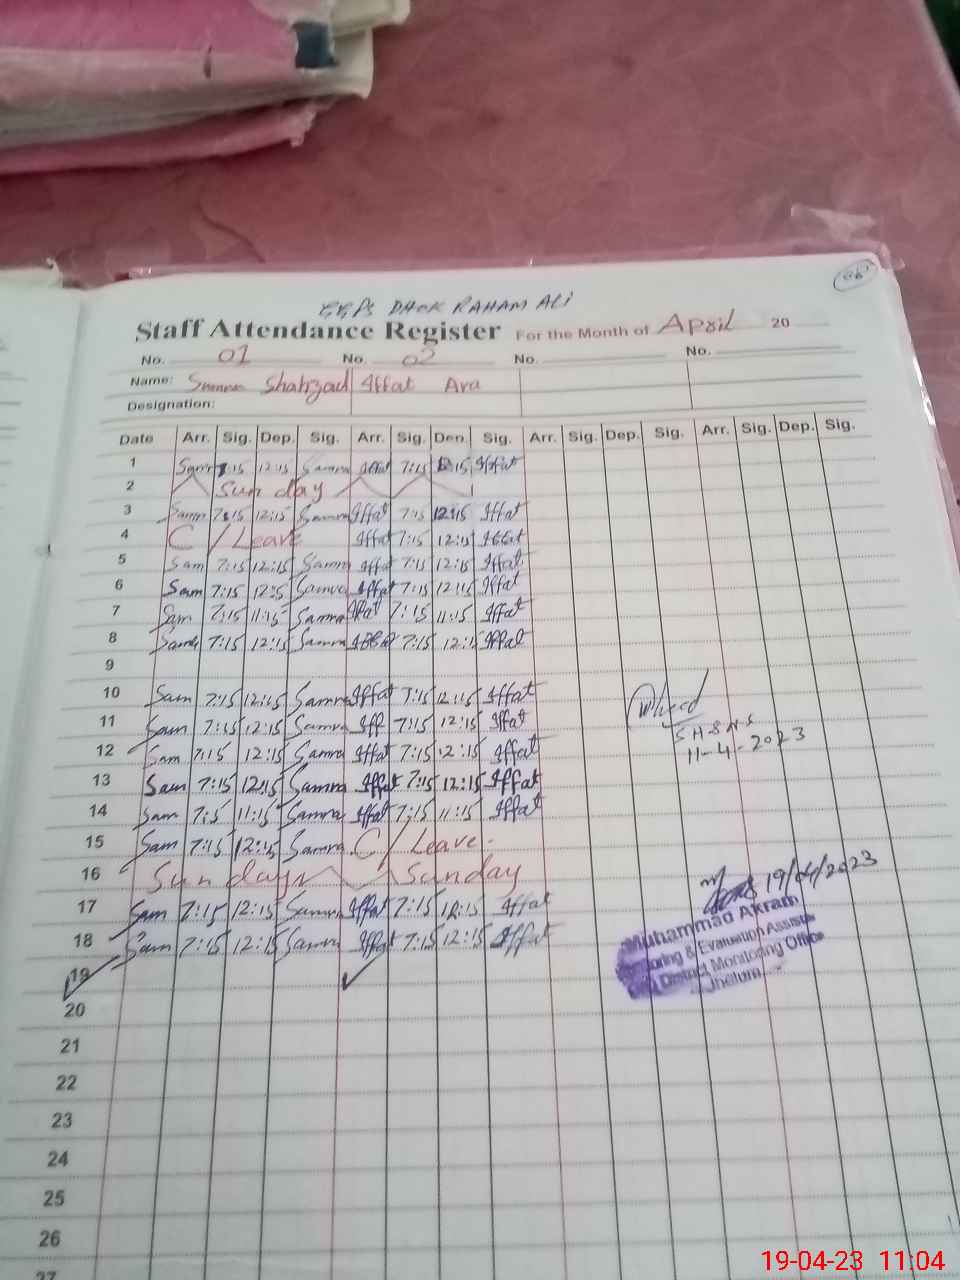 GGPS DHOK RAHAM ALI
Staff Attendance Register For the Month of April 20
No. 01 No. 02 No. No.
Name: Samra Shahzad Iffat Ara
Designation:
Date Arr. Sig. Dep. Sig. Arr. Sig. Dep. Sig. Arr. Sig. Dep. Sig. Arr. Sig. Dep. Sig.
1 7:15 12:15 Samra Iffat 7:15 12:15 Iffat
2 Sunday
3 Sam 7:15 12:15 Samra Iffat 7:15 12:15 Iffat
4 C/Leave Iffat 7:15 12:15 Iffat
5 Sam 7:15 12:15 Samra Iffat 7:15 12:15 Iffat
6 Sam 7:15 12:15 Samra Iffat 7:15 12:15 Iffat
7 Sam 7:15 11:15 Samra Iffat 7:15 11:15 Iffat
8 Sam 7:15 12:15 Samra Iffat 7:15 12:15 Iffat
9
10 Sam 7:15 12:15 Samra Iffat 7:15 12:15 Iffat
11 Sam 7:15 12:15 Samra Iff 7:15 12:15 Iffat
11-4-2023
12 Sam 7:15 12:15 Samra Iffat 7:15 12:15 Iffat
13 Sam 7:15 12:15 Samra Iffat 7:15 12:15 Iffat
14 Sam 7:15 11:15 Samra Iffat 7:15 11:15 Iffat
15 Sam 7:15 12:15 Samra C/Leave
16 Sunday Sunday
19/04/2023
17 Sam 7:15 12:15 Samra Iffat 7:15 12:15 Iffat
Muhammad Akram
Monitoring & Evaluation Assistant
18 Sam 7:15 12:15 Samra Iffat 7:15 12:15 Iffat
District Monitoring Office
Jhelum
19
20
21
22
23
24
25
26
27
19-04-23 11:04